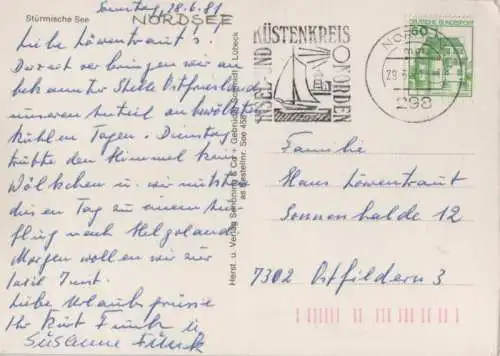 Stürmische See
NORDSEE
Sonntag, 28.6.81
Liebe Löwentraut's!
Derzeit verbringen wir an
bekannter Stelle Ostfriesland
unseren Anteil an bewölkten
kühlen Tagen. Dienstag
trübte den Himmel kein
Wölkchen u. wir nutzten
diesen Tag zu einem Aus-
flug nach Helgoland.
Morgen wollen wir zur
Insel Juist.
Liebe Urlaubsgrüsse
Ihr Kurt Funck u.
Susanne Funck
Herst. u. Verlag Schöning & Co + Gebrüder Schmidt, Lübeck
Bestellnr. See 458
INSEL- UND
KÜSTENKREIS
NORDEN
NORDEN 1
298
60
DEUTSCHE BUNDESPOST
Familie
Hans Löwentraut
Sonnenhalde 12
7302 Ostfildern 3